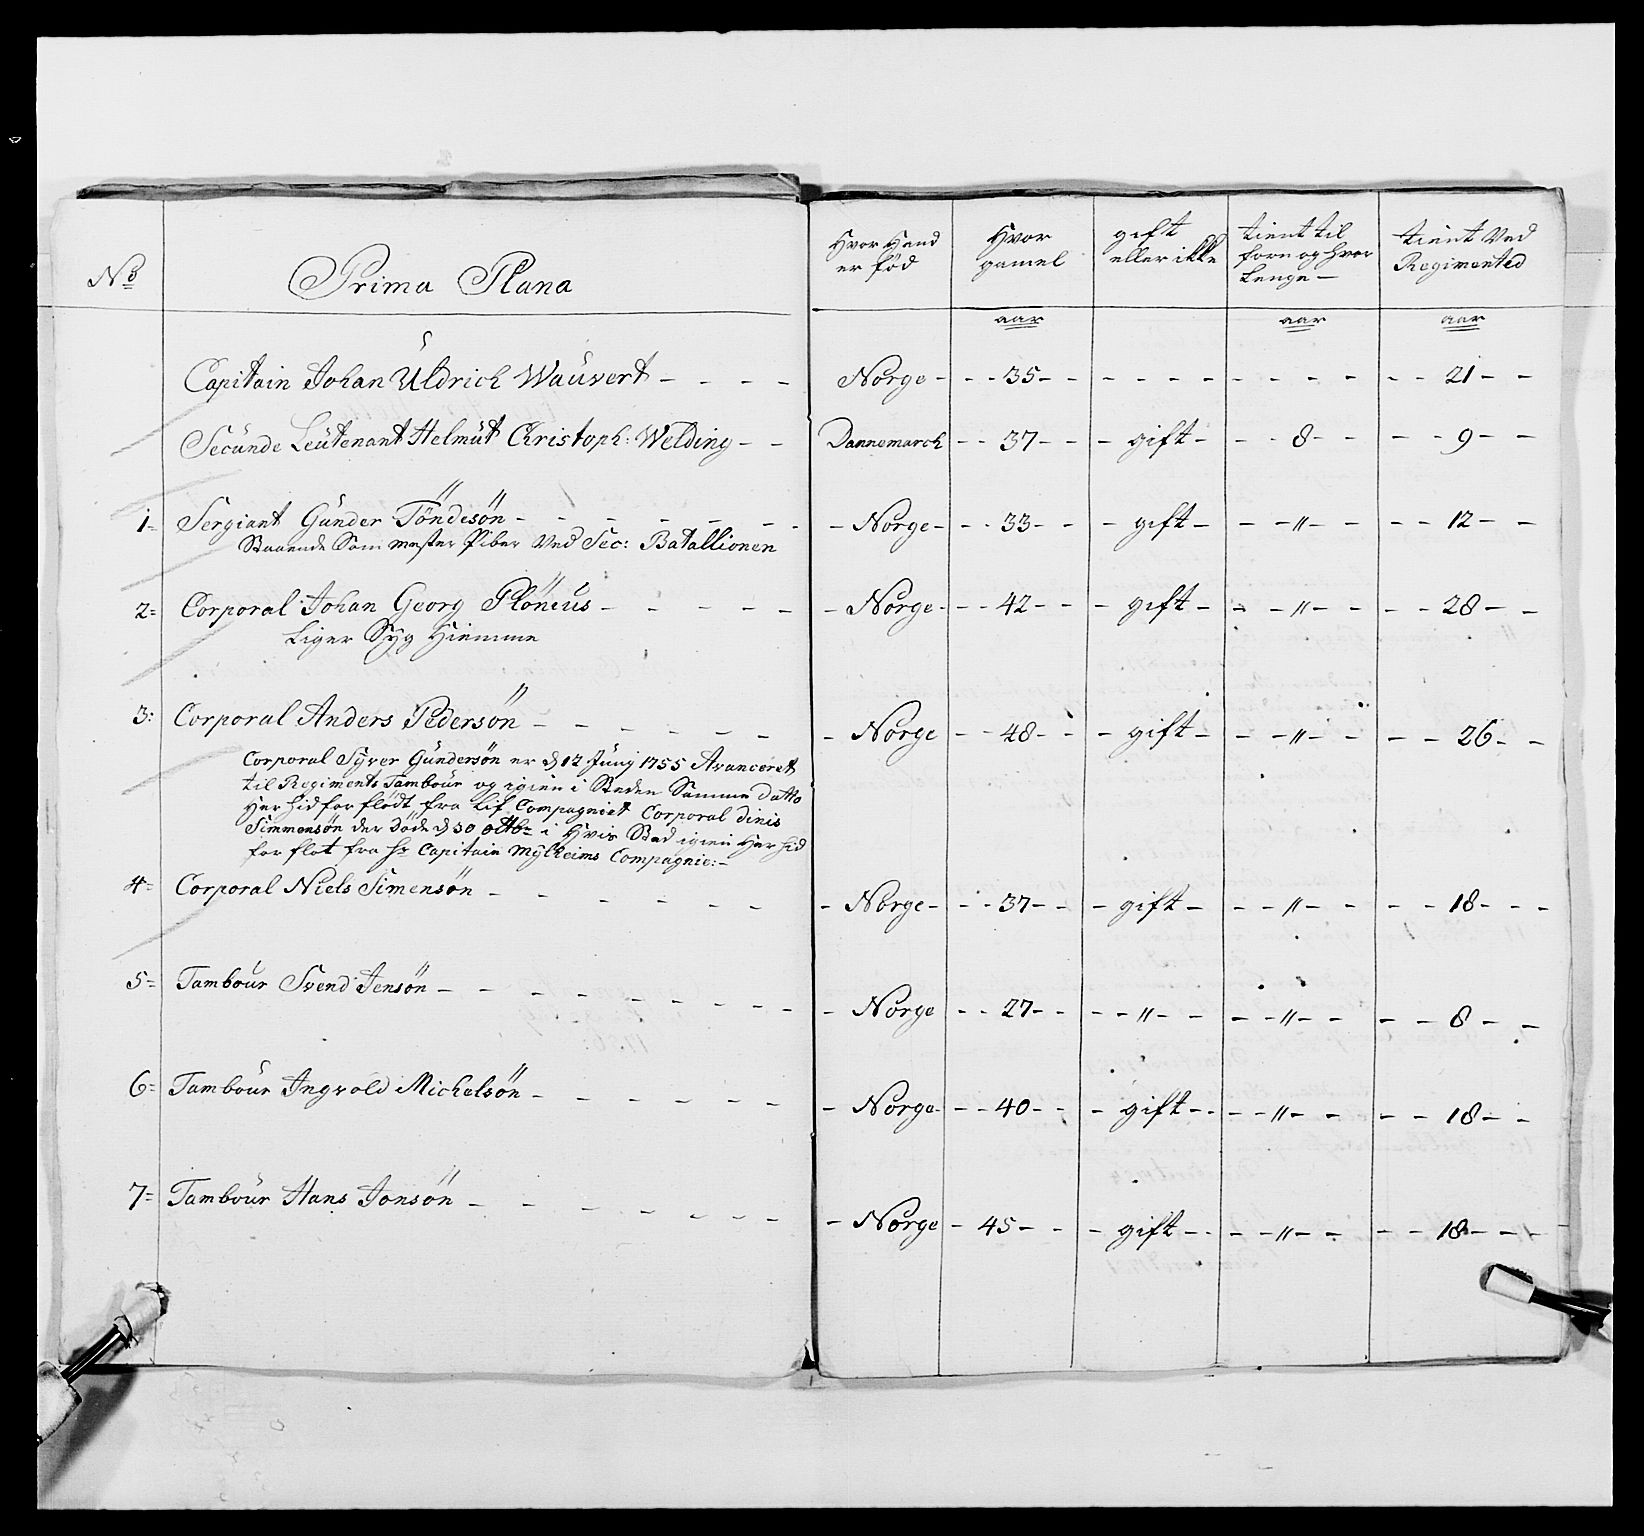 No Prima Plana Hvor Hand er föd Hvor gamel gift eller ikke tient til forn og hvor Lenge tient Ved Regimented
aar aar aar
Capitain Johan Uldrich Wauvert - - - - Norge - - - 35 - - - - - - - - - - - - 21 - -
Secunde Leutenant Helmut Christoph: Welding - - Dannemarck - - 37 - - - gift - - - 8 - - - - 9 - -
1= Sergiant Gunder Töndesön - - - - - - - Norge - - - 33 - - - gift - - - " - - - - 12 - -
Staaende Som mester Piber Ved Sec: Batallionen
2= Corporal Johan Georg Plöncus - - - - - - Norge - - - 42 - - - gift - - - " - - - - 28 - -
Liger Syg Hiemme
3: Corporal Anders Pedersön - - - - - - Norge - - 48 - - - gift - - - " - - - - 26 - -
Corporal Syver Gundersön er d 12 Junij 1755 Avanceret
til Regiments Tambour og igien i Steden Samme Datto
Her hid forflödt fra Lif Compagniet Corporal
Simmensön der döde d 30 i Hvis Sted igien Her hid
for flot fra Hr Capitain Mylheims Compagnie:-
4= Corporal Niels Simensön - - - - - - Norge - - - 37 - - - gift - - - " - - - - 18 - - -
5= Tambour Svend Jensön - - - - - - - - - Norge - - 27 - - - - " - - - - " - - - - 8 - -
6= Tambour Ingvold Michelsön - - - - - - Norge - - - 40 - - - gift - - - - " - - - - 18 - -
7= Tambour Hans Jonsön - - - - - - - Norge - 45 - - - gift - - - - " - - - - 18 - - -